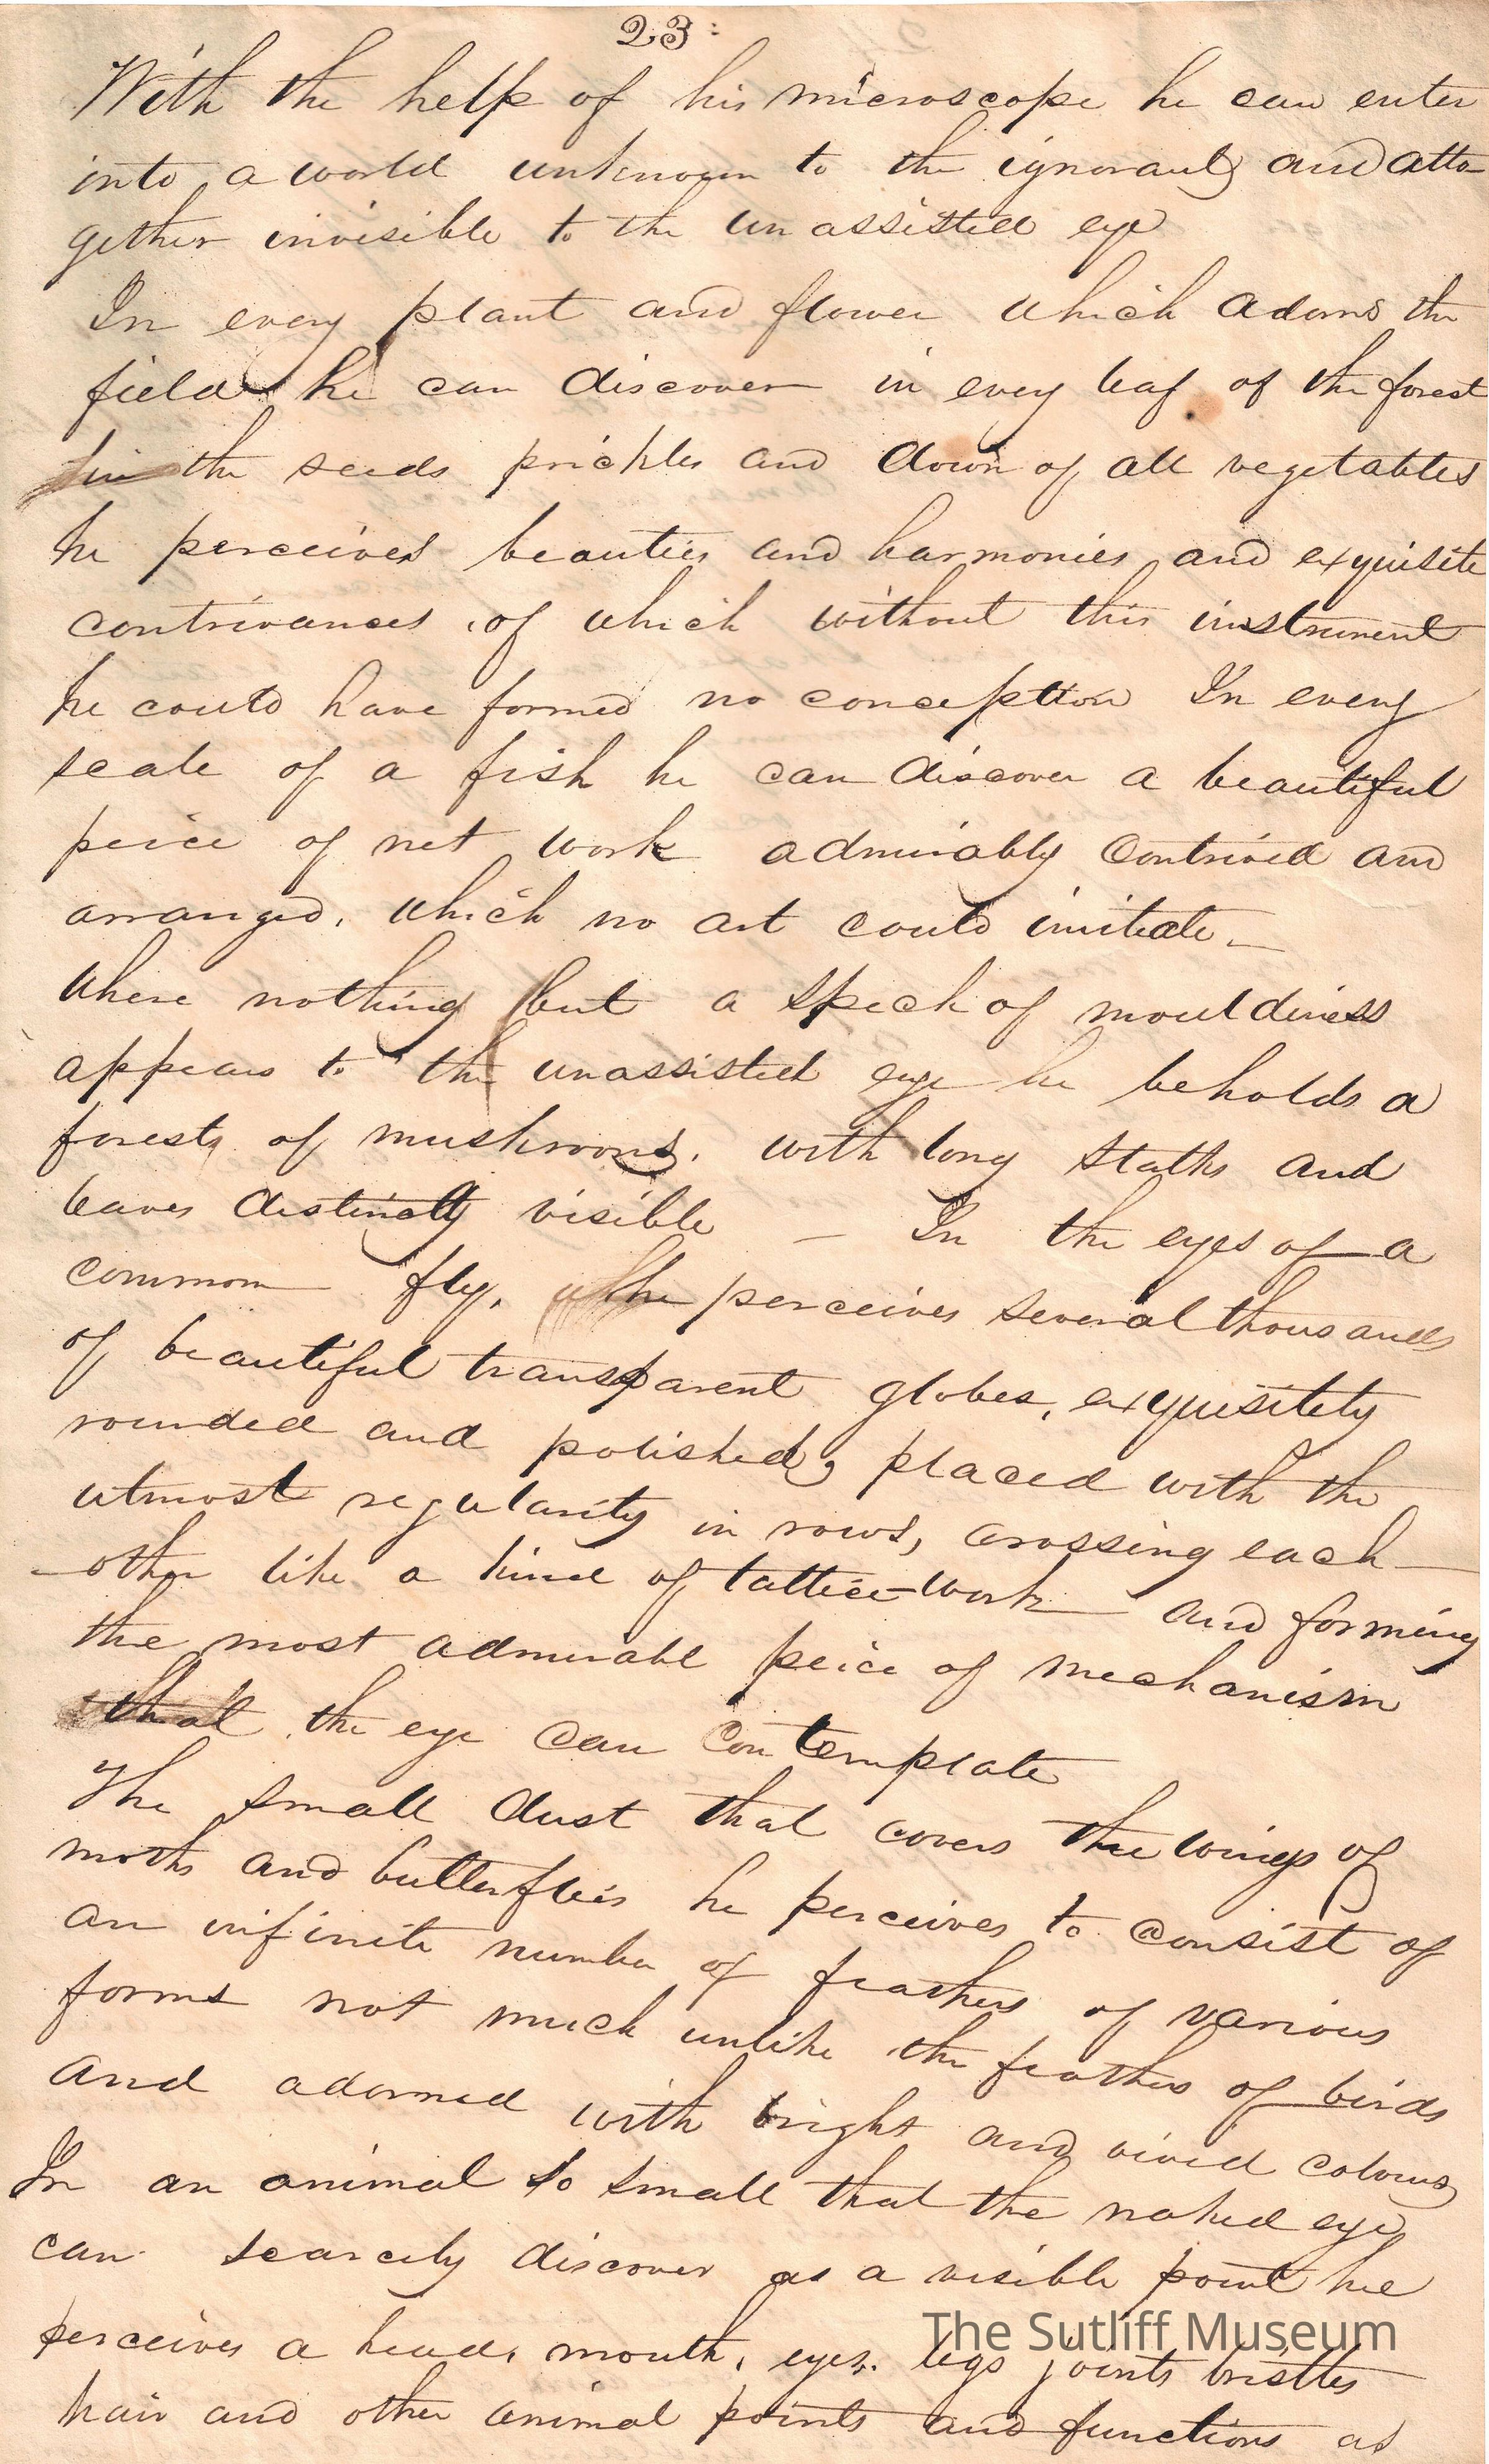 23:
With the help of his microscope he can enter
into a world unknown to the ignorant, and alto-
gether invisible to the un assisted eye
In every plant and flower which adorns the
field he can discover in every leaf of the forest
in the seeds prickles and down of all vegetables
he perceives beauties and harmonies and exquisite
contrivances, of which without this instrument
he could have formed no conception In every
scale of a fish he can discover a beautiful
peice of net work admirably contrived and
arranged, which no art could imitate -
Where nothing but a speck of mouldiness
appears to the unassisted eye he beholds a
forests of mushrooms. with long stalks and
leaves distinctly visible - In the eyes of a
common fly, he perceives several thousands
of beautiful transparent globes, exquisitely
rounded and polished, placed with the
utmost regularity in rows, crossing each
other like a kind of lattice-work and forming
the most admirable peice of mechanism
that the eye can contemplate
The small dust that covers the wings of
moths and butterflies he perceives to consist of
an infinite number of feathers of various
forms not much unlike the feathers of birds
and adorned with bright and vivid colours,
In an animal so small that the naked eye
can scarcely discover as a visible point he
perceives a head, mouth, eyes. legs joints bristles
hair and other animal points and functions as
The Sutliff Museum